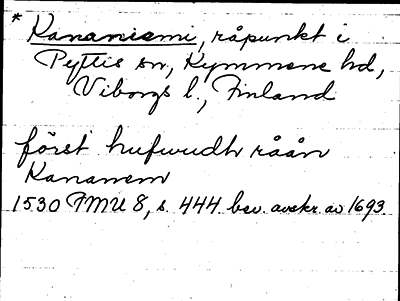 * Kananiemi, råpunkt i
Pyttis sn, Kymmene hd,
Viborgs l., Finland
först hufwudh råån
Kananem
1530 FMU 8, s. 444 bev. avskr. av 1693.